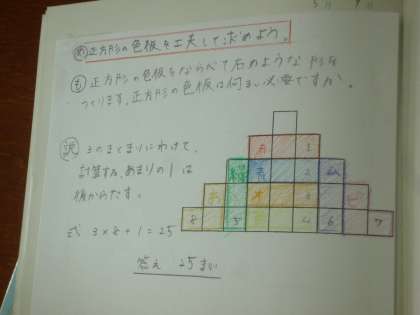 め 正方形の色板を工夫して求めよう。
も 正方形の色板をならべて右のような形を
つくります。正方形の色板は何まい必要ですか。
3のまとまりにわけて、
計算する。あまりの1は
後からたす。
式 3×8+1=25
答え 25まい
あ 1
緑 青 2 むら
オ 3
8 5 4 6 7